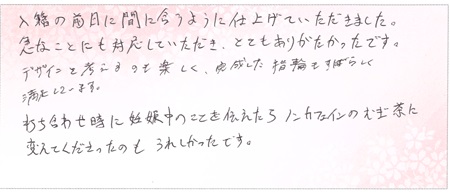 入籍の前日に間に合うように仕上げていただきました。
急なことにも対応していただき、とてもありがたかったです。
デザインを考えるのも楽しく、完成した指輪もすばらしく
満足しています。
打ち合わせ時に妊娠中のことを伝えたら ノンカフェインのむぎ茶に
変えてくださったのも うれしかったです。